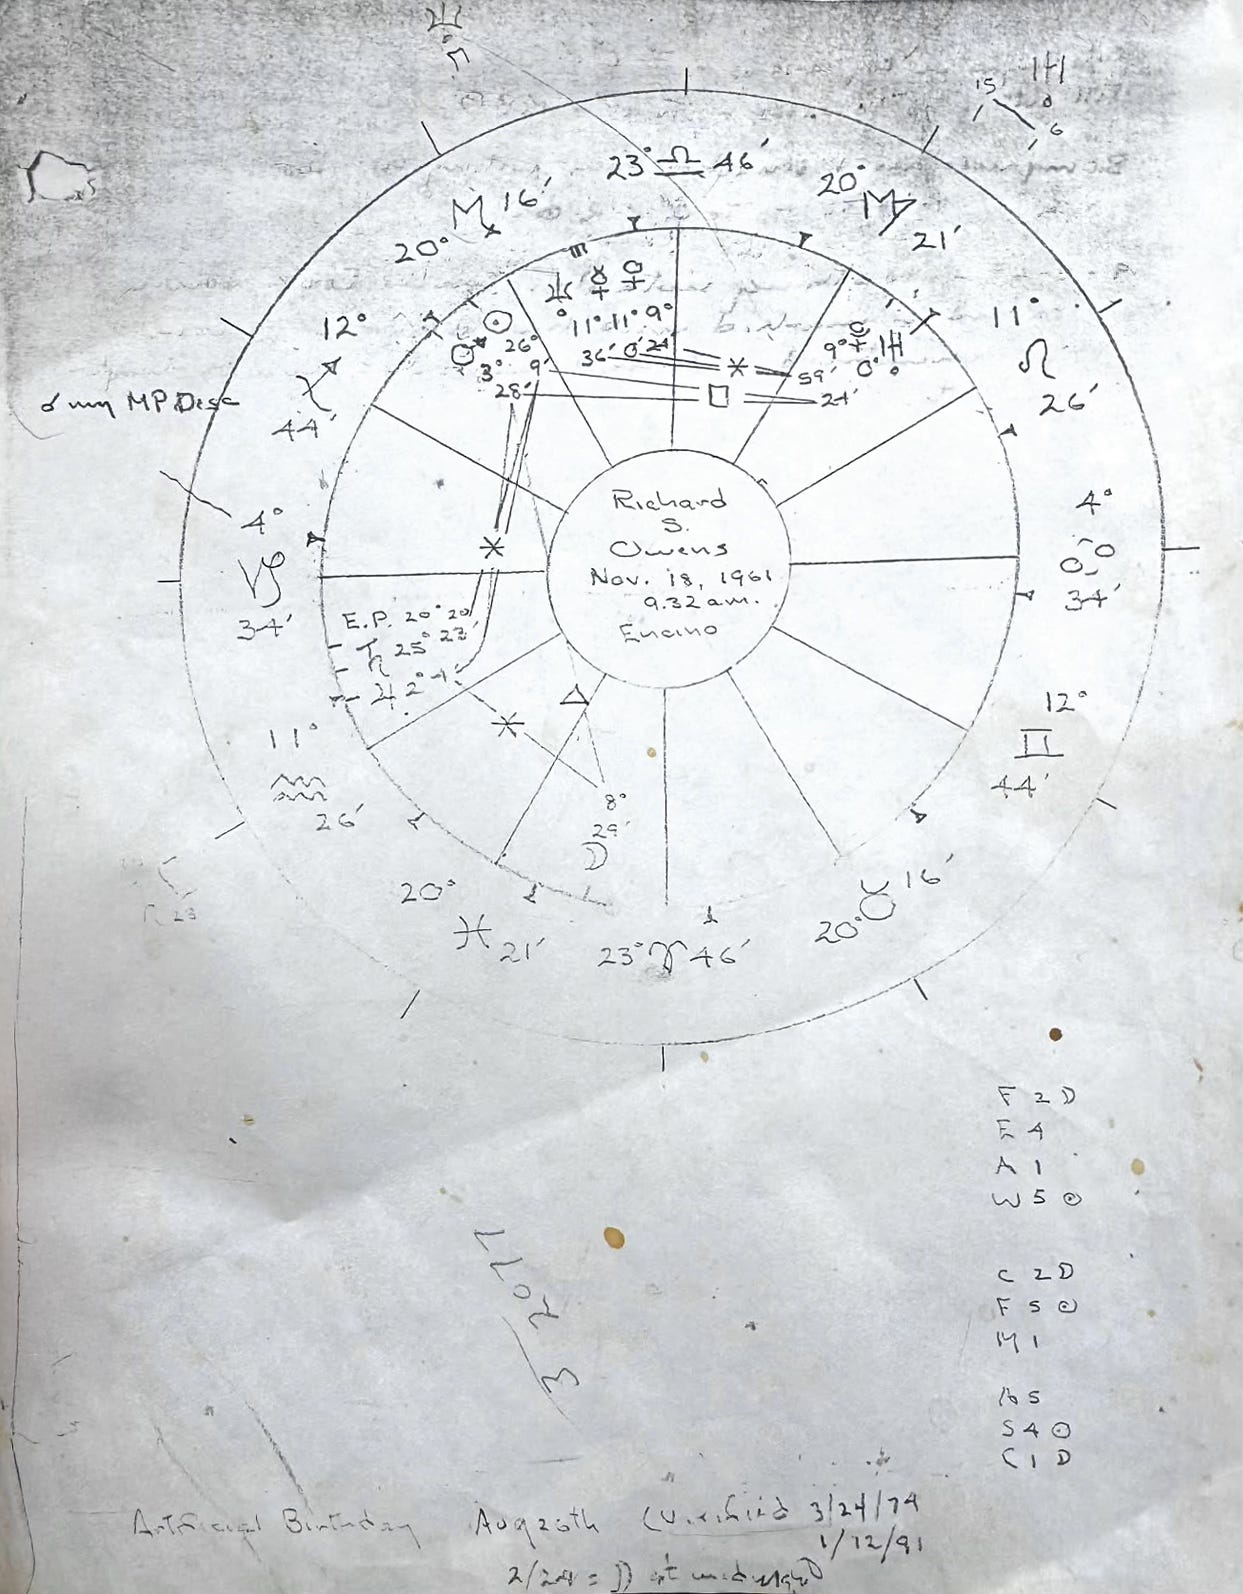 ♆
15 ♅
6
23° ♎ 46′
20° ♍ 21′
♏ 16′
20°
♆ ☿ ♀
11° 11° 9°
36′ 0′ 24′
11°
♌
26′
12°
♐
44′
☉
26°
♂ 3° 9′
28′
9° ♇ 0° ♅
59′
24′
⚹
□
☌ my MP Desc
4°
♑
34′
4°
♋
34′
⚹
Richard
S.
Owens
Nov. 18, 1961
9.32 a.m.
Encino
E.P. 20° 20′
♄ 25° 22′
♃ 2° 4′
△
⚹
12°
♊
44′
11°
♒
26′
8°
29′
☽
20°
♓ 21′
23° ♈ 46′
20° ♉ 16′
23
F 2 D
E 4
A 1
W 5 ☉
C 2 D
F 5 ☉
M 1
A 5
S 4 ☉
C 1 D
Artificial Birthday Aug 20th (Verified 3/24/74
1/12/91
2/24 = ☽ at